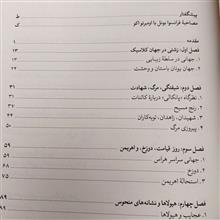 پیشگفتار
مصاحبهٔ فرانسوا بونل با اومبرتو اکو ط
مقدمه ک
فصل اول: زشتی در جهان کلاسیک ۱۳
۱. جهانی در سلطهٔ زیبایی ۱۳
۲. جهان یونان باستان و وحشت ۲۲
فصل دوم: شیفتگی، مرگ، شهادت ۳۱
۱. نظرگاه «پانکالی» دربارهٔ کائنات ۳۱
۲. رنج مسیح ۳۶
۳. شهیدان، زاهدان، توبه‌کاران ۴۱
۴. پیروزی مرگ ۵۰
فصل سوم: روز قیامت، دوزخ، و اهریمن ۵۹
۱. جهانی سراسر هراس ۵۹
۲. دوزخ
۳. استحالهٔ اهریمن
فصل چهارم: هیولاها و نشانه‌های منحوس ۸۹
۱. عجایب و هیولاها